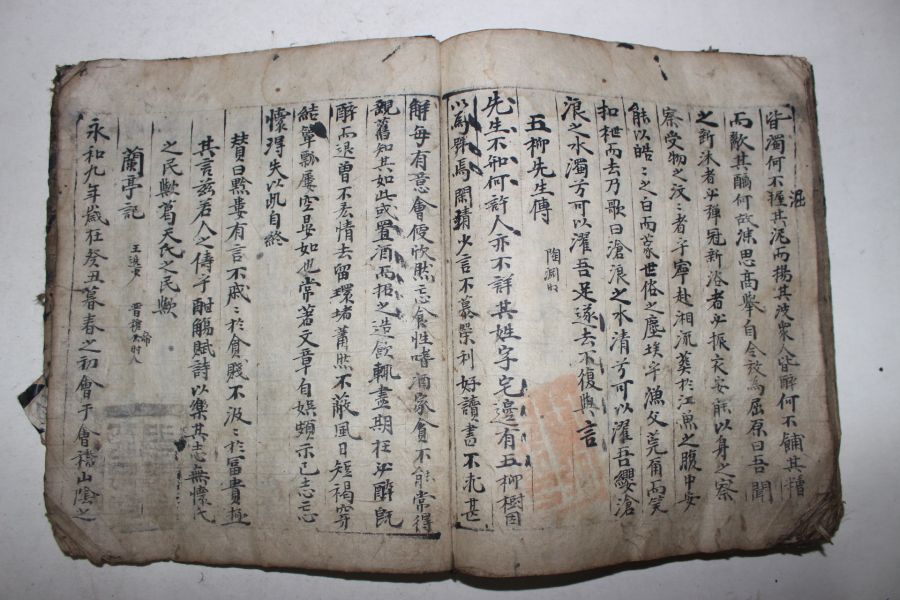 皆濁何不掘其泥而揚其波衆人皆醉何不餔其糟
而歠其醨何故深思高擧自令放為屈原曰吾聞
之新沐者必彈冠新浴者必振衣安能以身之察
察受物之汶〻者乎寧赴湘流葬於江魚之腹中安
能以皓〻之白而蒙世俗之塵埃乎漁父莞甬而笑
扣枻而去乃歌曰滄浪之水清兮可以濯吾纓滄
浪之水濁兮可以濯吾足遂去不復與言
五柳先生傳 陶淵明
先生不知何許人亦不詳其姓字宅邊有五柳樹因
以爲號焉閑靖少言不慕榮利好讀書不求甚
解每有意會便欣然忘食性嗜酒家貧不能常得
親舊知其如此或置酒而招之造飲輒盡期在必醉旣
醉而退曽不吝情去留環堵蕭然不蔽風日短褐穿
結簞瓢屢空晏如也常著文章自娛頗示已志忘
懷得失以此自終
賛曰黔婁有言不戚〻於貧賤不汲〻於冨貴極
其言玆若人之儔乎酣觴賦詩以樂其志無懷氏
之民歟葛天氏之民歟
蘭亭記 王逸少 晋穆帝時人
永和九年歲在癸丑暮春之初會于會稽山陰之